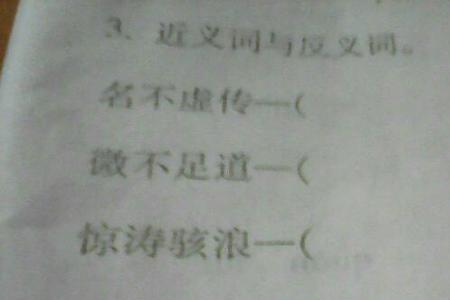 3、近义词与反义词。
名不虚传—(
微不足道—(
惊涛骇浪—(